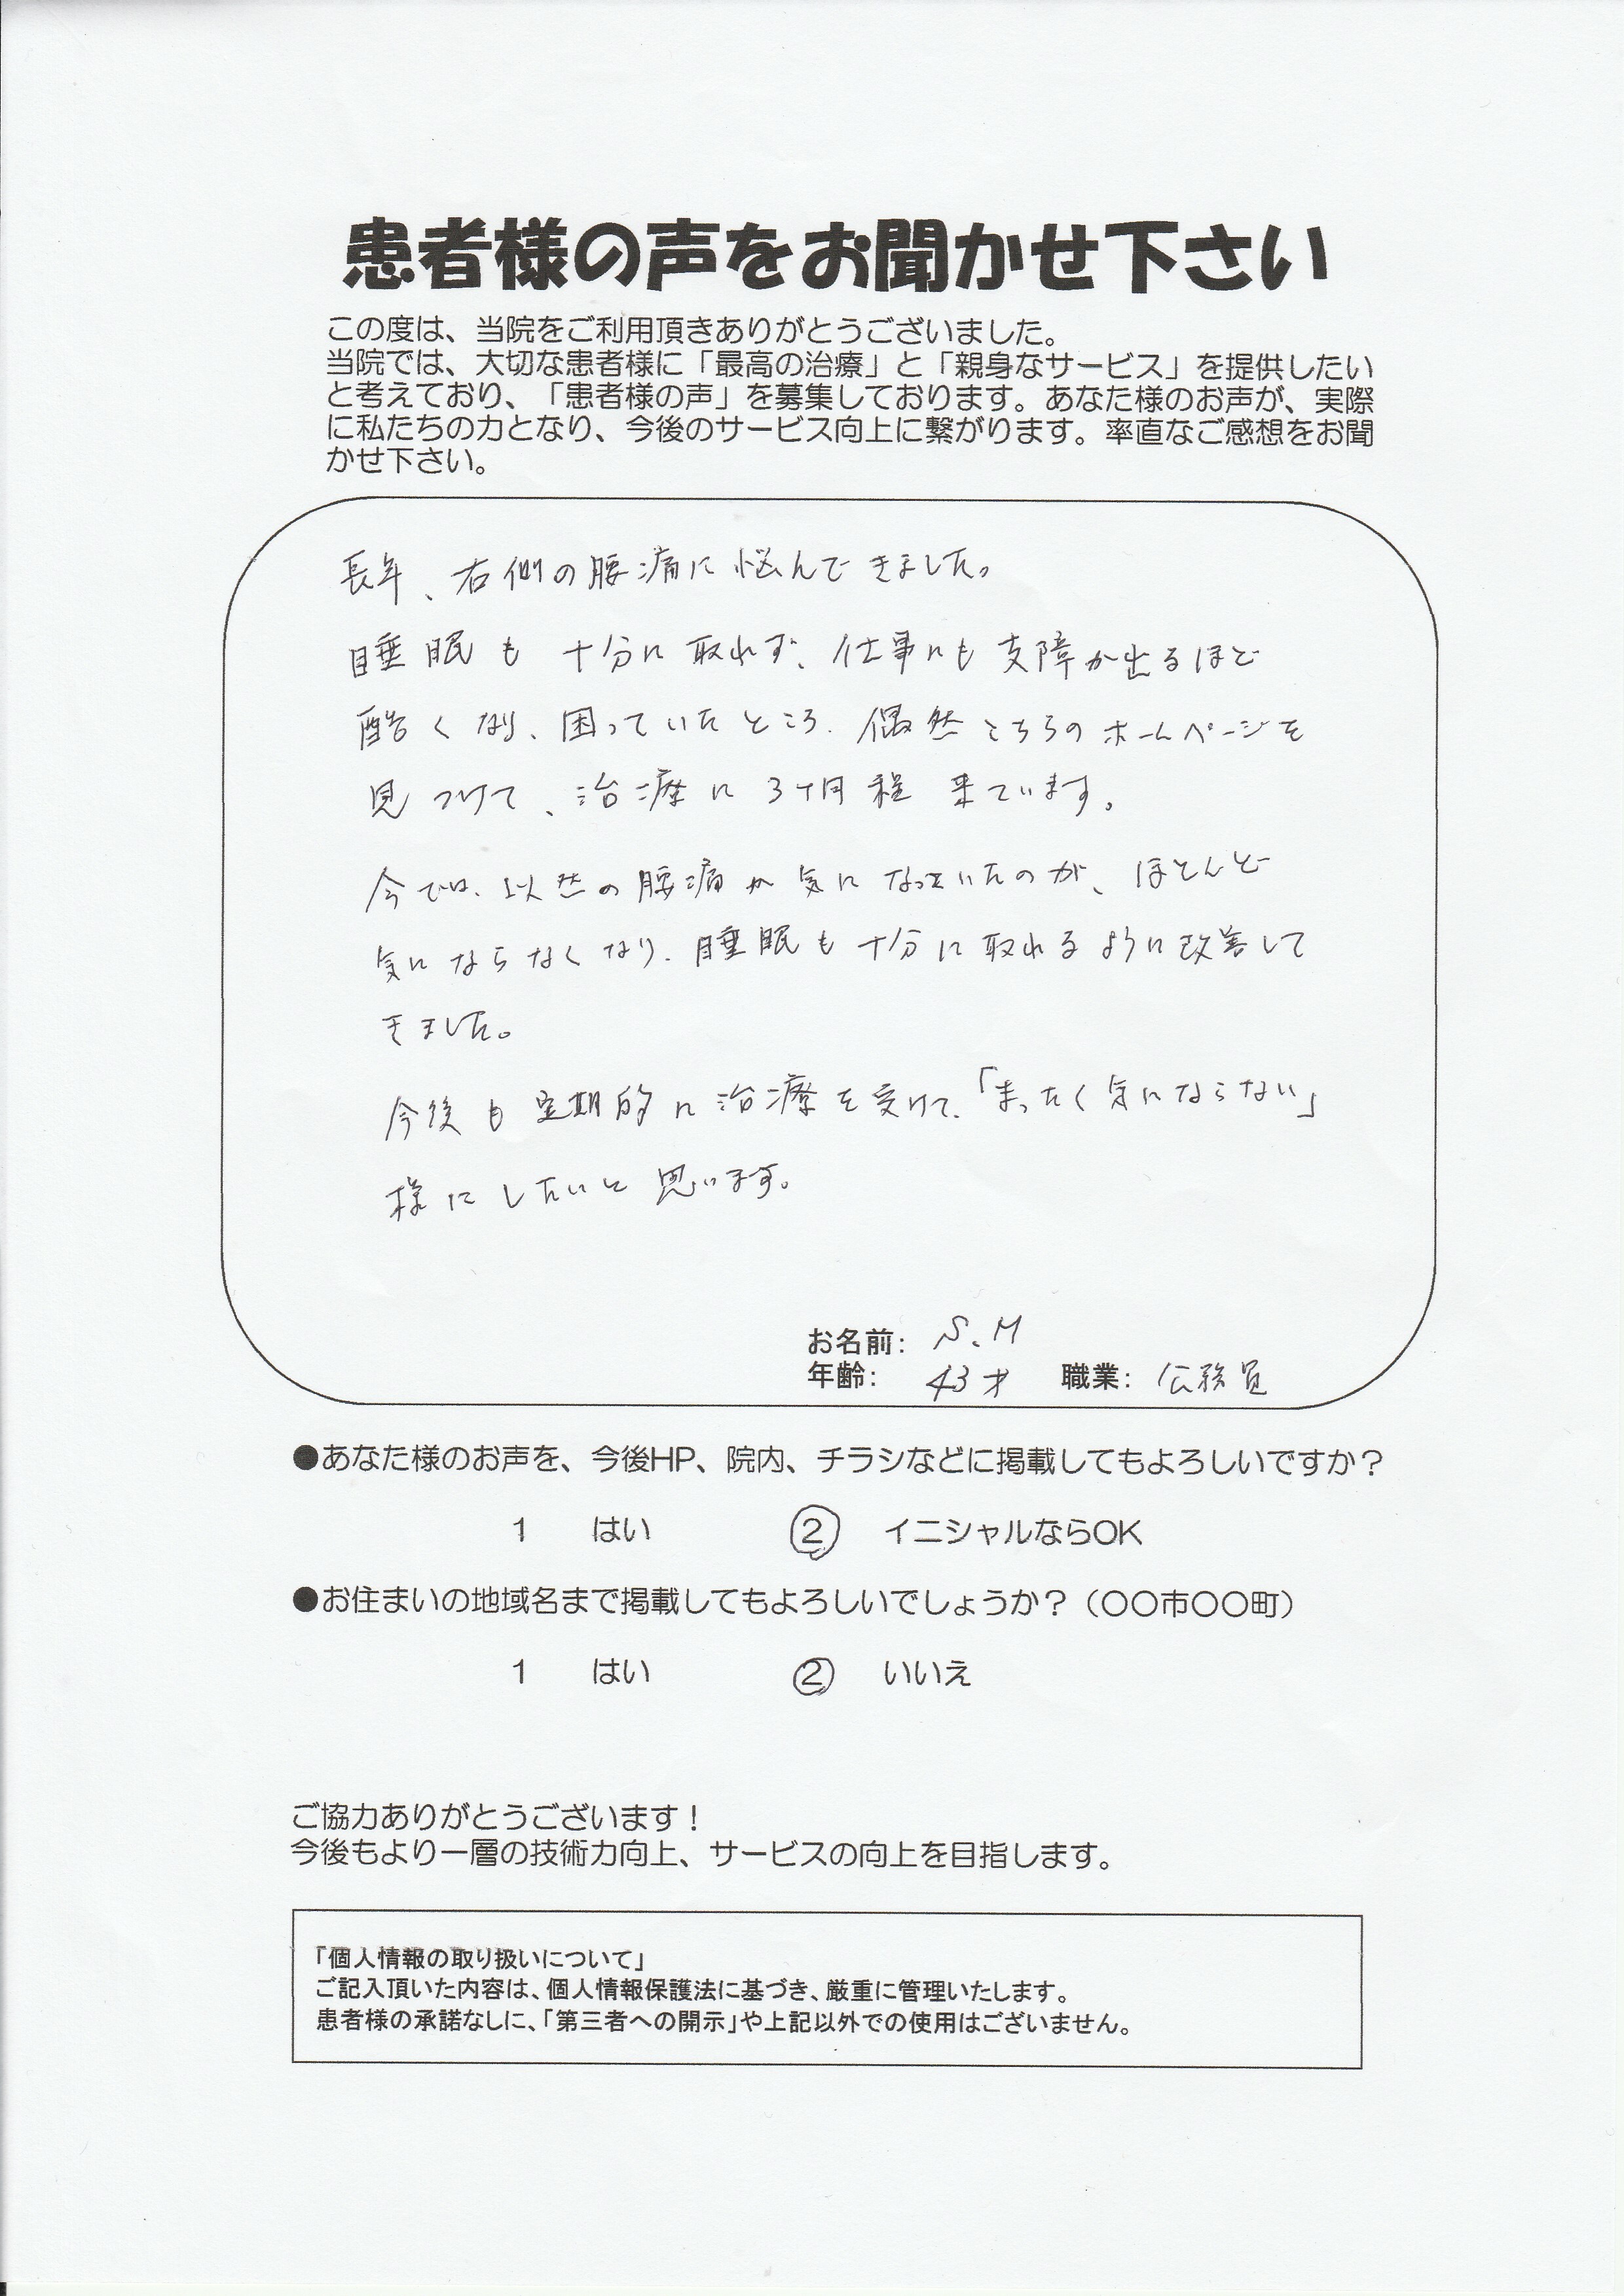 患者様の声をお聞かせ下さい
この度は、当院をご利用頂きありがとうございました。
当院では、大切な患者様に「最高の治療」と「親身なサービス」を提供したい
と考えており、「患者様の声」を募集しております。あなた様のお声が、実際
に私たちの力となり、今後のサービス向上に繋がります。率直なご感想をお聞
かせ下さい。
長年、右側の腰痛に悩んできました。
睡眠も十分に取れず、仕事にも支障が出るほど
酷くなり、困っていたところ、偶然こちらのホームページを
見つけて、治療に3ヶ月程来ています。
今では、以然の腰痛が気になっていたのが、ほとんど
気にならなくなり、睡眠も十分に取れるように改善して
きました。
今後も定期的に治療を受けて、「まったく気にならない」
様にしたいと思います。
お名前: S.M
年齢: 43才 職業: 公務員
●あなた様のお声を、今後HP、院内、チラシなどに掲載してもよろしいですか？
1 はい ② イニシャルならOK
●お住まいの地域名まで掲載してもよろしいでしょうか？（〇〇市〇〇町）
1 はい ② いいえ
ご協力ありがとうございます！
今後もより一層の技術力向上、サービスの向上を目指します。
「個人情報の取り扱いについて」
ご記入頂いた内容は、個人情報保護法に基づき、厳重に管理いたします。
患者様の承諾なしに、「第三者への開示」や上記以外での使用はございません。